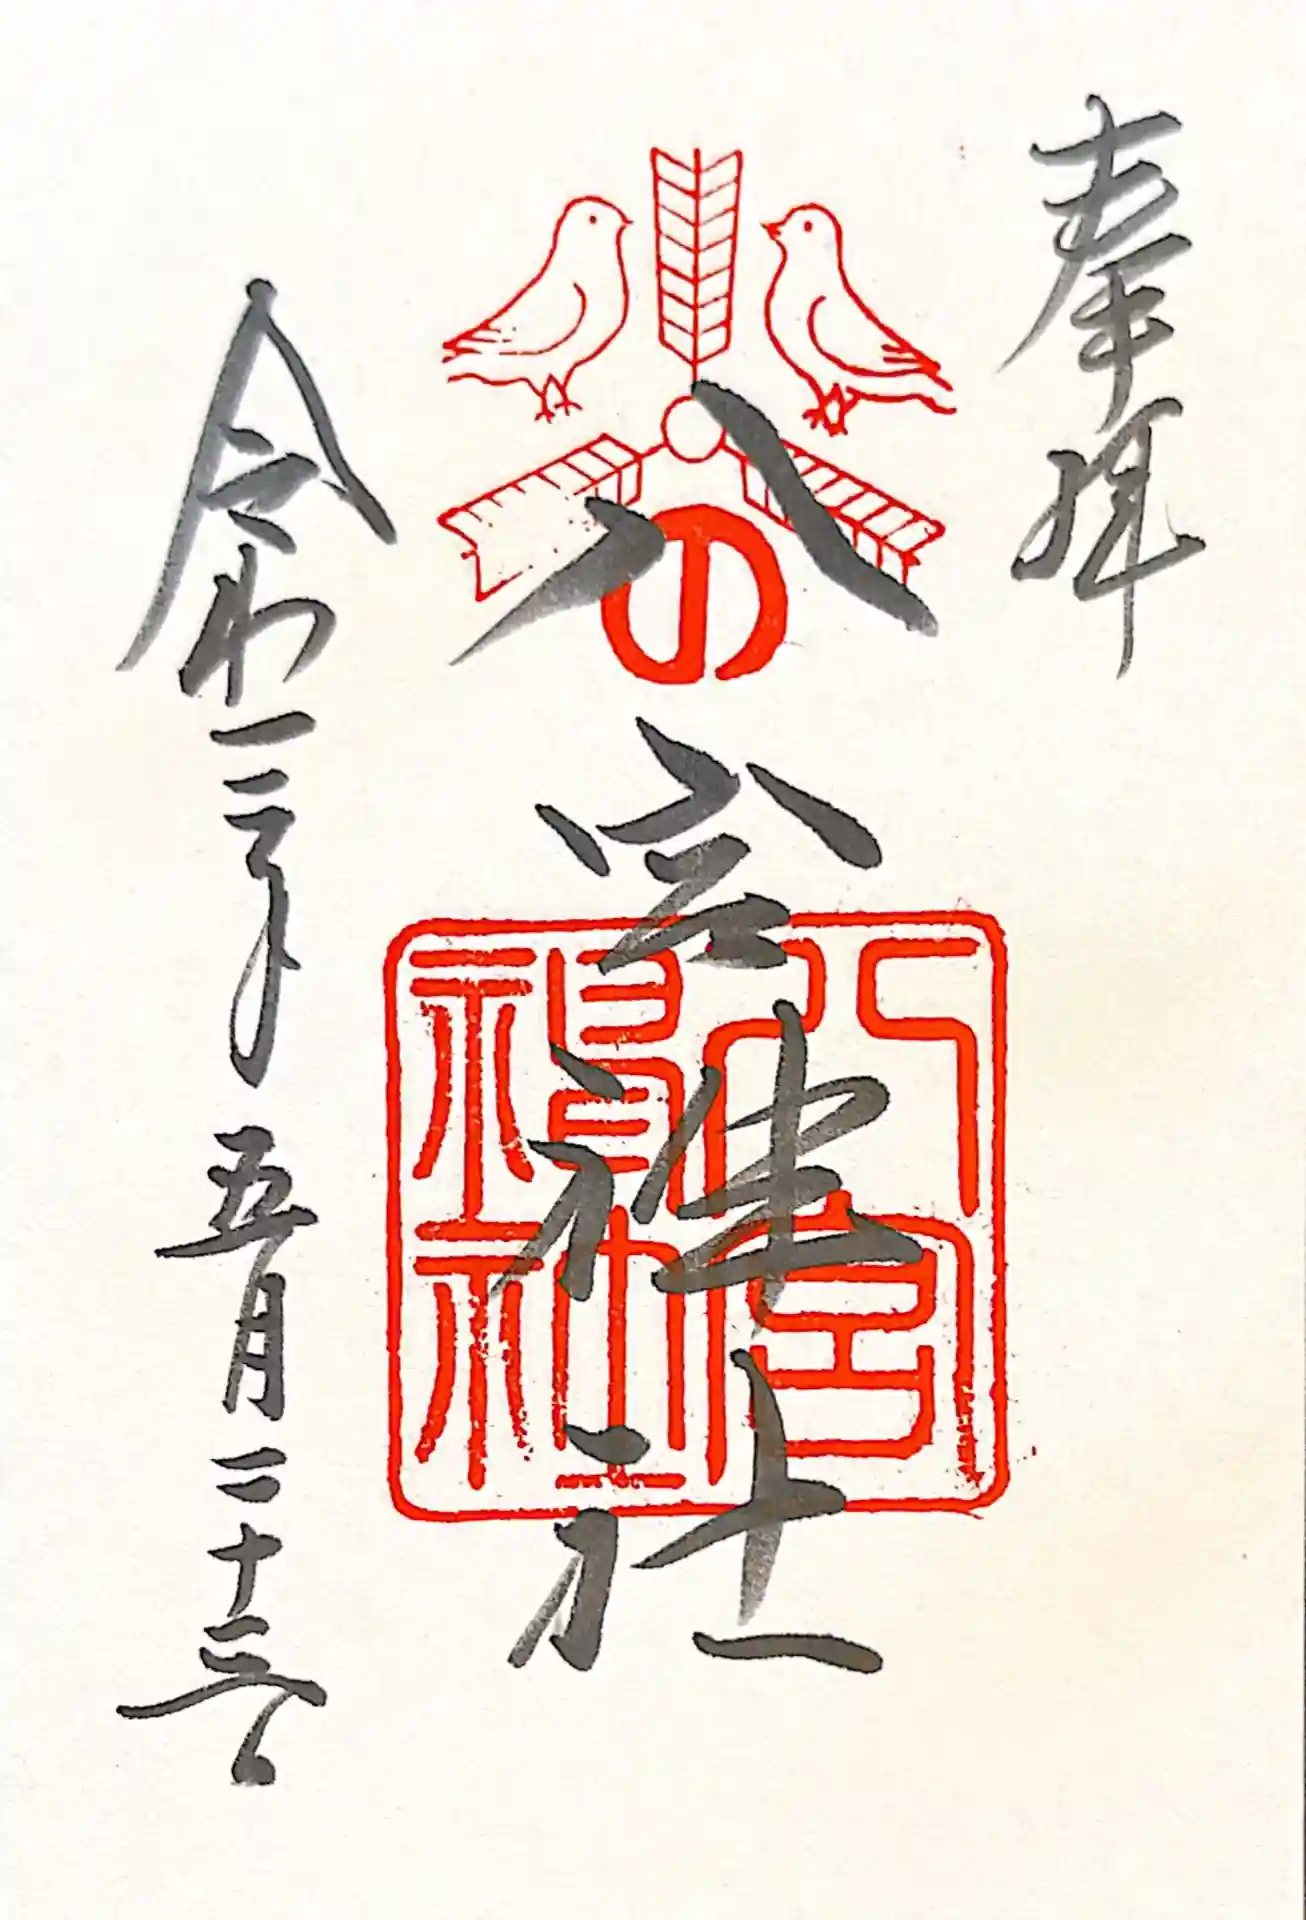 奉拝
の
八宮神社
八宮神社
令和三年五月二十三日